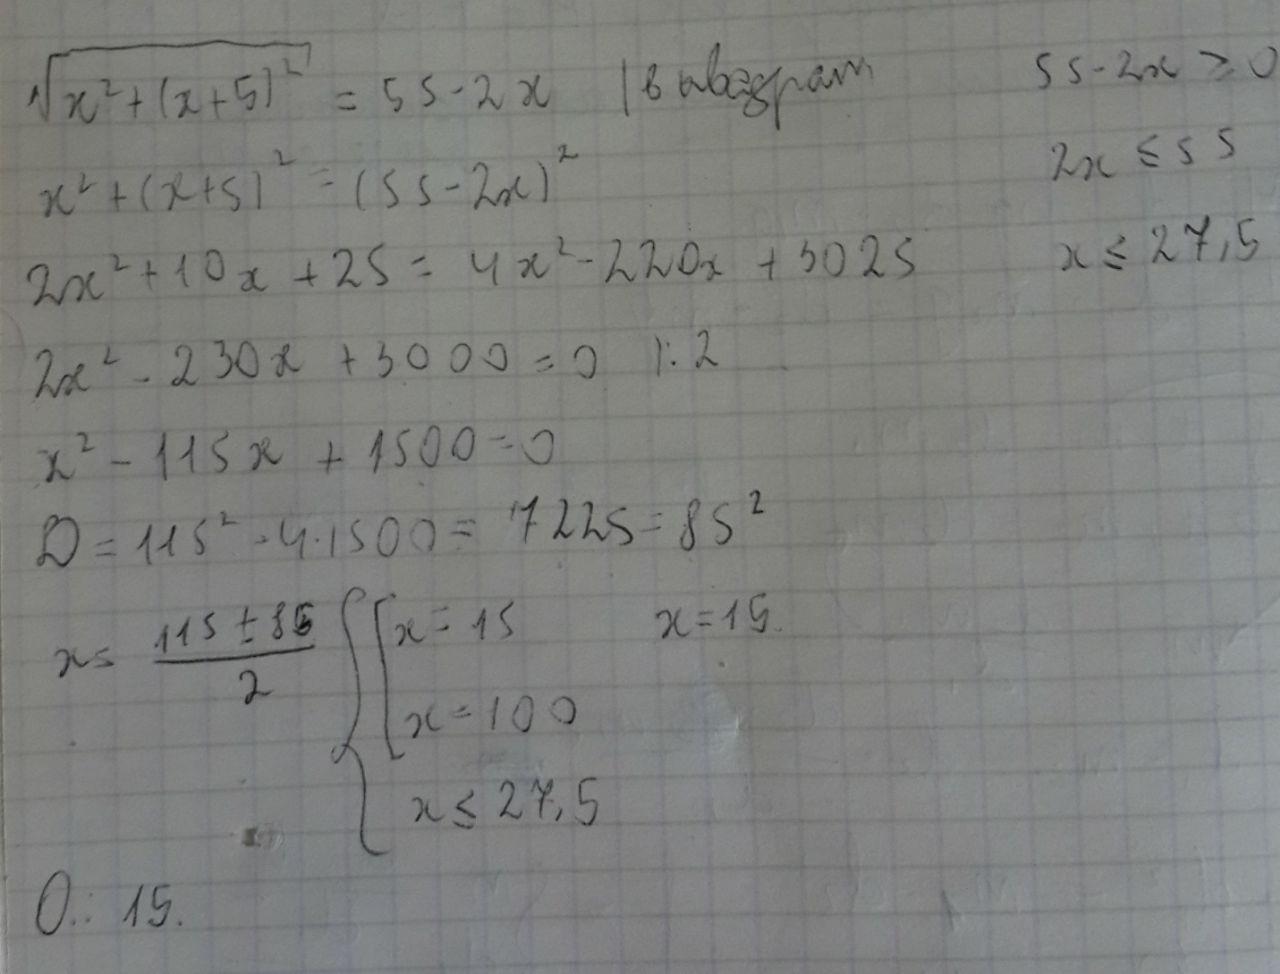 √(x²+(x+5)²) = 55-2x | в квадрат 55-2x ≥ 0
x²+(x+5)² = (55-2x)² 2x ≤ 55
2x²+10x+25 = 4x²-220x+3025 x ≤ 27,5
2x²-230x+3000=0 |:2
x²-115x+1500=0
D=115²-4·1500=7225=85²
x= (115±85)/2 { [ x=15 x=15.
x=100
x≤27,5
О.: 15.